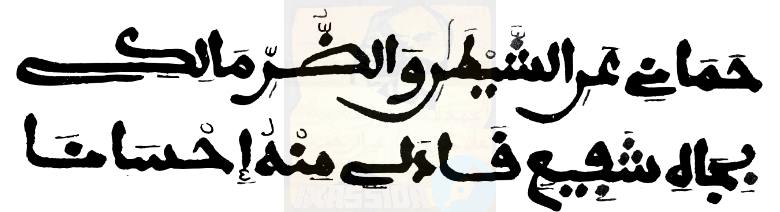 حَمَانِي عَنِ الشَّيْطَنِ وَالضُّرِّ مَالِكِي
بِجَاهِ شَفِيعٍ قَادَ لِي مِنْهُ إِحْسَانَا